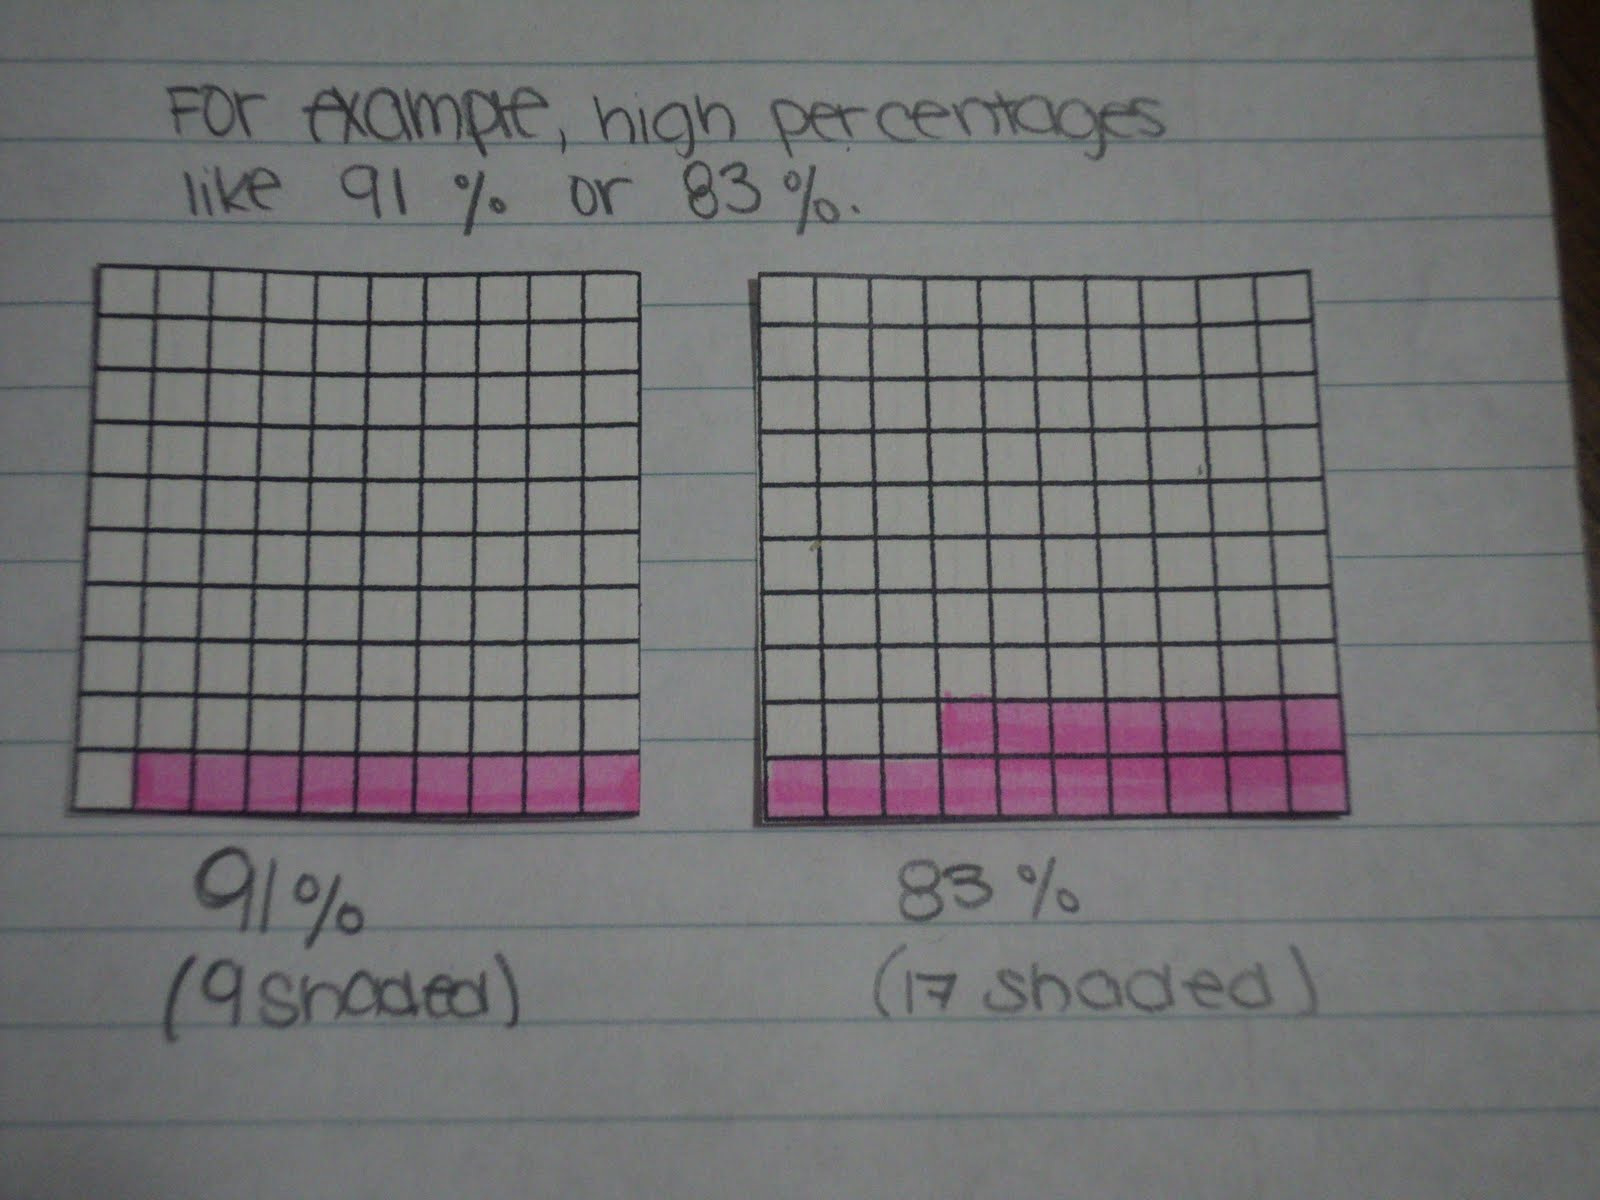 For example, high percentages
like 91% or 83%.
91%
(9 shaded)
83%
(17 shaded)